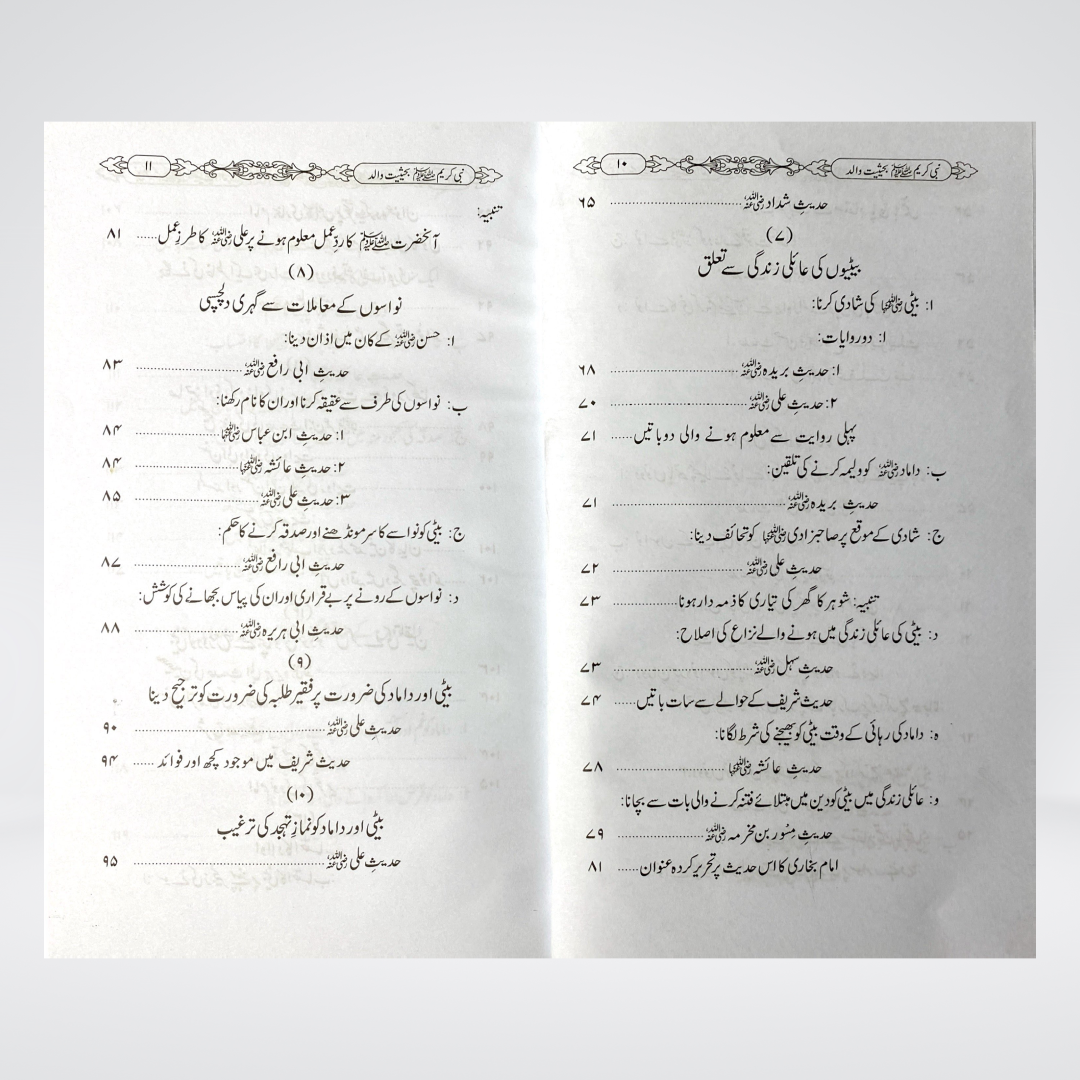 نبی کریم ﷺ بحیثیت والد
۱۰
حدیثِ شداد رضی اللہ عنہ ........ ۶۵
(۷)
بیٹیوں کی عائلی زندگی سے تعلق
ا: بیٹی رضی اللہ عنہا کی شادی کرنا:
ا: دو روایات:
۱: حدیثِ بریدہ رضی اللہ عنہ ........ ۶۸
۲: حدیثِ علی رضی اللہ عنہ ........ ۷۰
پہلی روایت سے معلوم ہونے والی دو باتیں ...... ۷۱
ب: داماد رضی اللہ عنہ کو ولیمہ کرنے کی تلقین:
حدیثِ بریدہ رضی اللہ عنہ ........ ۷۱
ج: شادی کے موقع پر صاحبزادی رضی اللہ عنہا کو تحائف دینا:
حدیثِ علی رضی اللہ عنہ ........ ۷۲
تنبیہ: شوہر کا گھر کی تیاری کا ذمہ دار ہونا ........ ۷۳
د: بیٹی کی عائلی زندگی میں ہونے والے نزاع کی اصلاح:
حدیثِ سہل رضی اللہ عنہ ........ ۷۳
حدیث شریف کے حوالے سے سات باتیں ...... ۷۴
ہ: داماد کی رہائی کے وقت بیٹی کو بھیجنے کی شرط لگانا:
حدیثِ عائشہ رضی اللہ عنہا ........ ۷۸
و: عائلی زندگی میں بیٹی کو دین میں مبتلائے فتنہ کرنے والی بات سے بچانا:
حدیثِ مِسْور بن مخرمہ رضی اللہ عنہ ........ ۷۹
امام بخاری کا اس حدیث پر تحریر کردہ عنوان ...... ۸۱
نبی کریم ﷺ بحیثیت والد
۱۱
تنبیہ:
آنحضرت ﷺ کا ردِّعمل معلوم ہونے پر علی رضی اللہ عنہ کا طرزِ عمل ..... ۸۱
(۸)
نواسوں کے معاملات سے گہری دلچسپی
ا: حسن رضی اللہ عنہ کے کان میں اذان دینا:
حدیثِ ابی رافع رضی اللہ عنہ ........ ۸۳
ب: نواسوں کی طرف سے عقیقہ کرنا اور ان کا نام رکھنا:
۱: حدیثِ ابن عباس رضی اللہ عنہما ........ ۸۴
۲: حدیثِ عائشہ رضی اللہ عنہا ........ ۸۴
۳: حدیثِ علی رضی اللہ عنہ ........ ۸۵
ج: بیٹی کو نواسے کا سر مونڈھنے اور صدقہ کرنے کا حکم:
حدیثِ ابی رافع رضی اللہ عنہ ........ ۸۷
د: نواسوں کے رونے پر بے قراری اور ان کی پیاس بجھانے کی کوشش:
حدیثِ ابی ہریرہ رضی اللہ عنہ ........ ۸۸
(۹)
بیٹی اور داماد کی ضرورت پر فقیر طلبہ کی ضرورت کو ترجیح دینا
حدیثِ علی رضی اللہ عنہ ........ ۹۰
حدیث شریف میں موجود کچھ اور فوائد ...... ۹۴
(۱۰)
بیٹی اور داماد کو نمازِ تہجد کی ترغیب
حدیثِ علی رضی اللہ عنہ ........ ۹۵